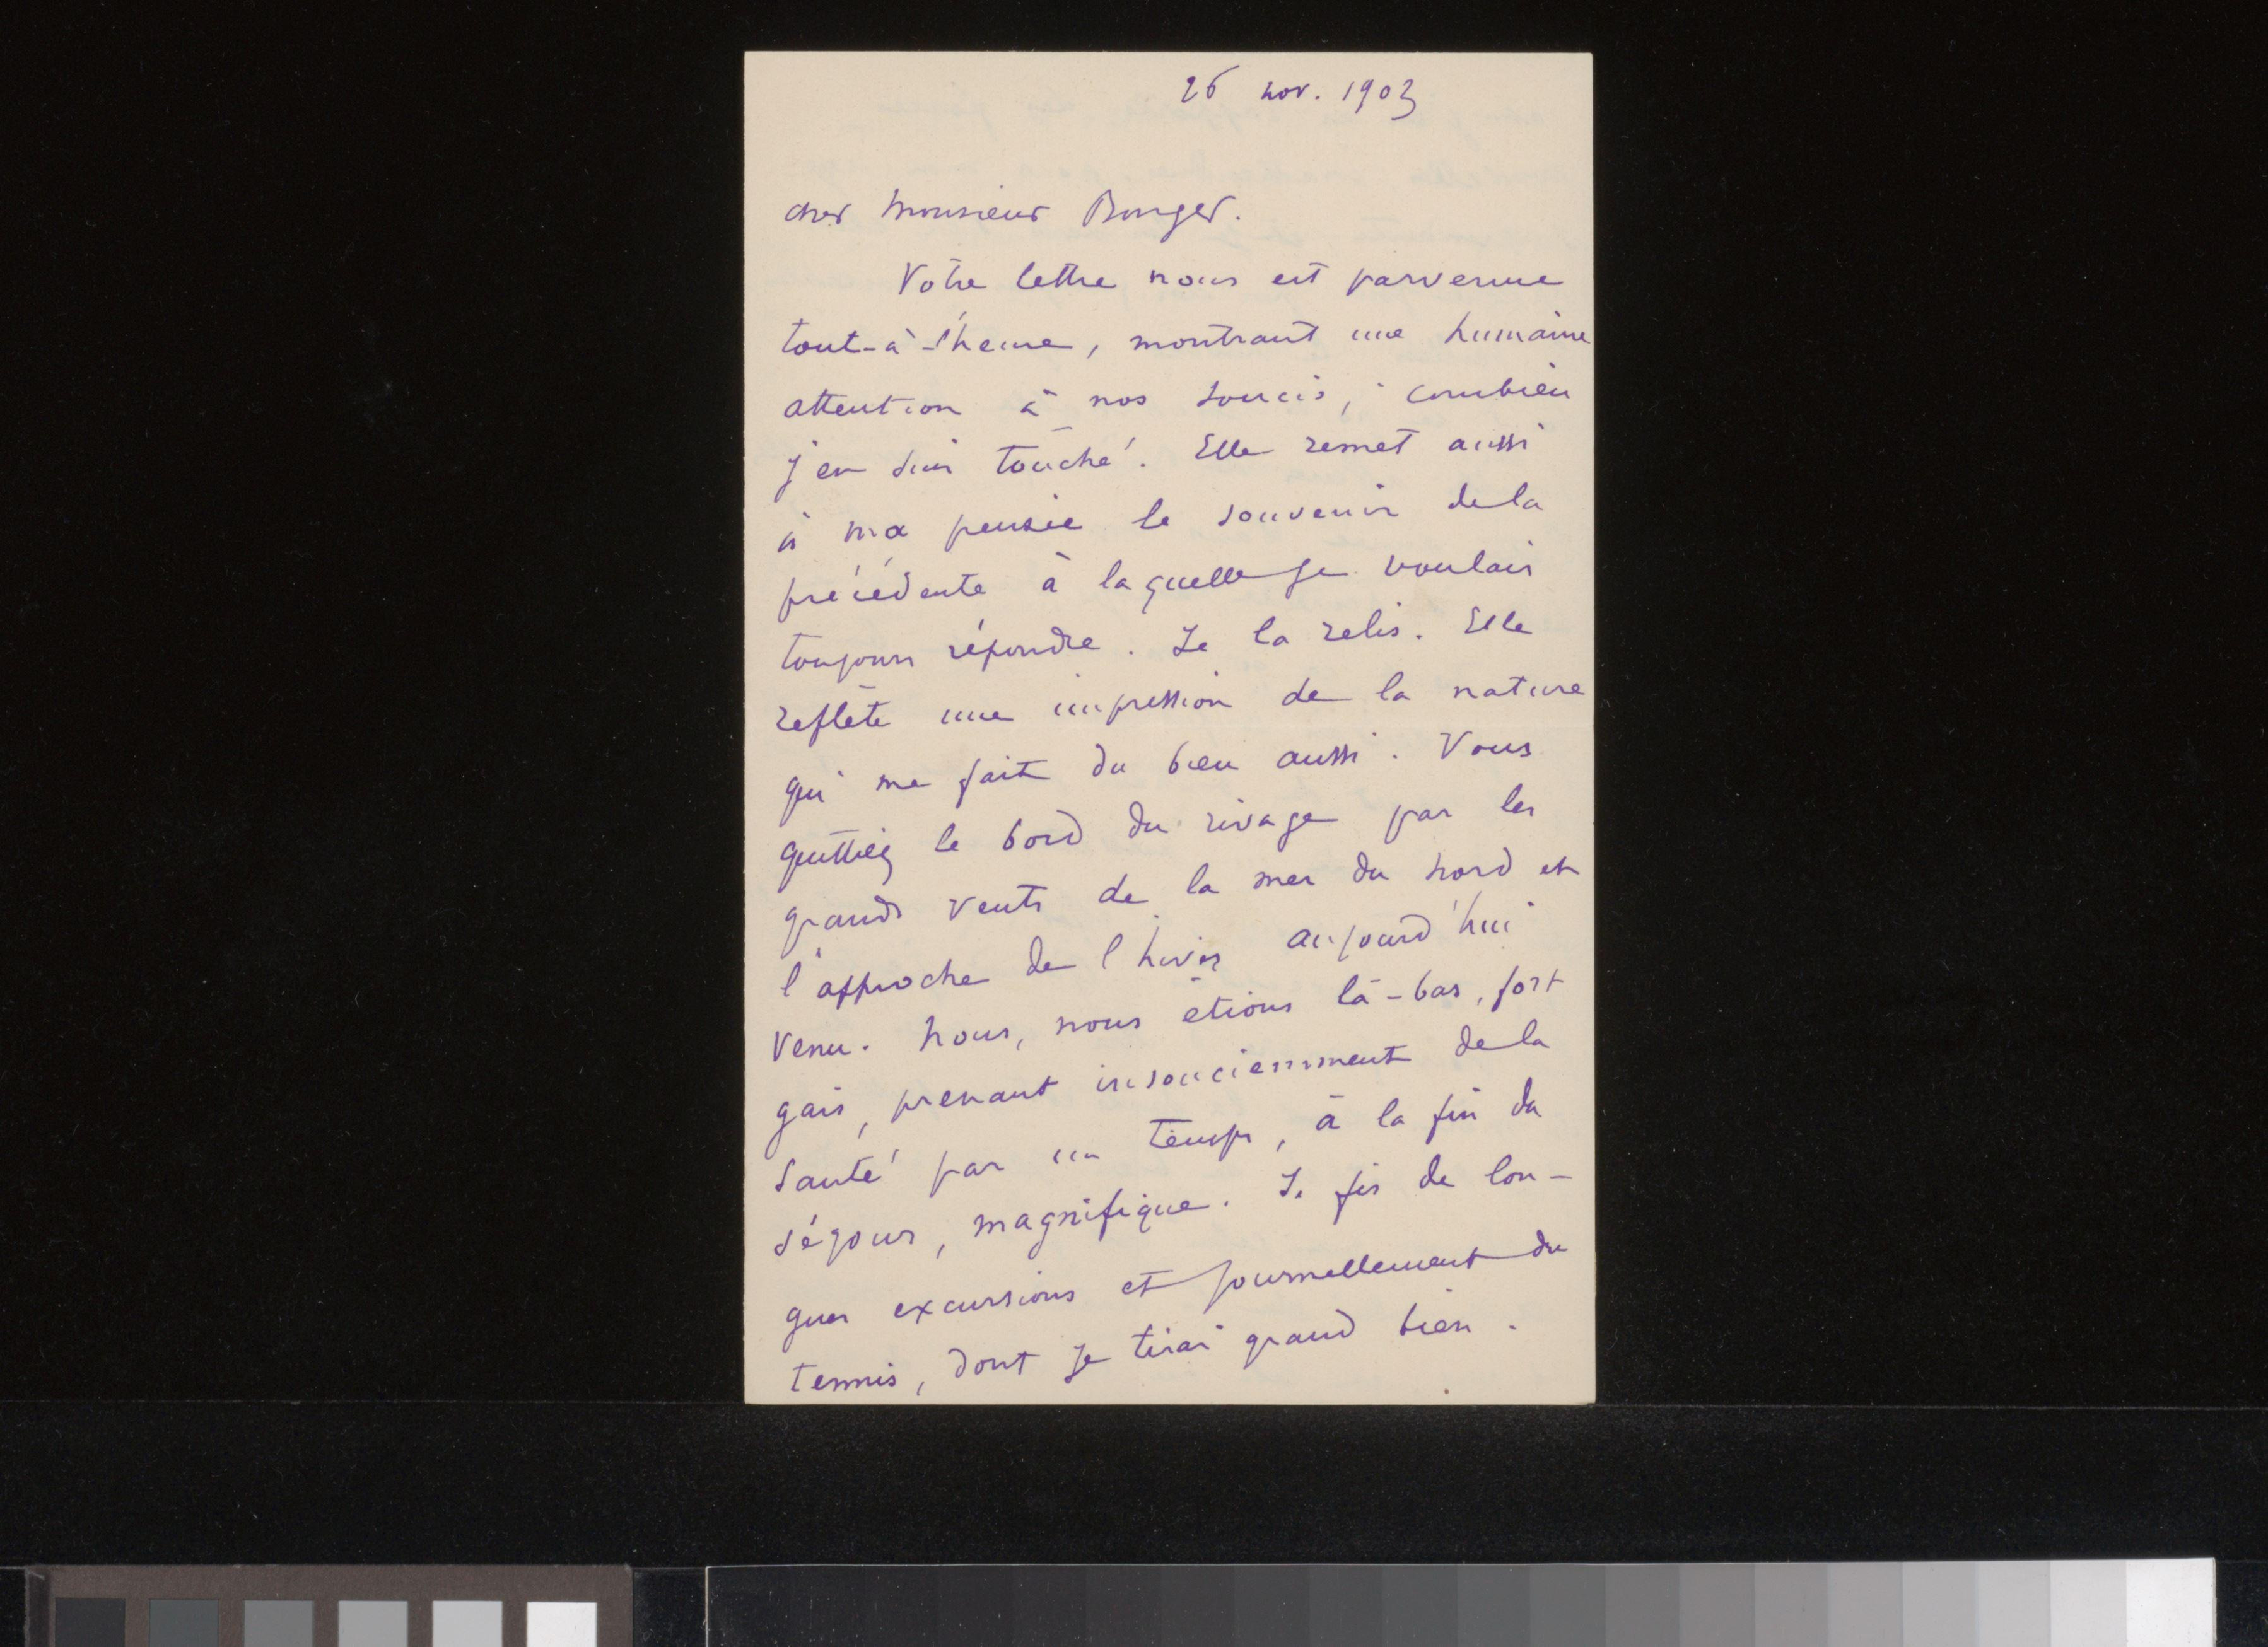 26 nov. 1903
cher Monsieur Bonger.
Votre lettre nous est parvenue
tout-à-l'heure, montrant une humaine
attention à nos soucis ; combien
j'en suis touché. Elle remet aussi
à ma pensée le souvenir de la
précédente à laquelle je voulais
toujours répondre. Je la relis. Elle
reflète une impression de la nature
qui me fait du bien aussi. Vous
quittiez le bord du rivage par les
grands vents de la mer du nord et
l'approche de l'hiver aujourd'hui
venu. Nous, nous étions là-bas, fort
gais, prenant insouciemment de la
santé par un temps, à la fin du
séjour, magnifique. Je fis de lon-
gues excursions et journellement du
tennis, dont je tirai grand bien.